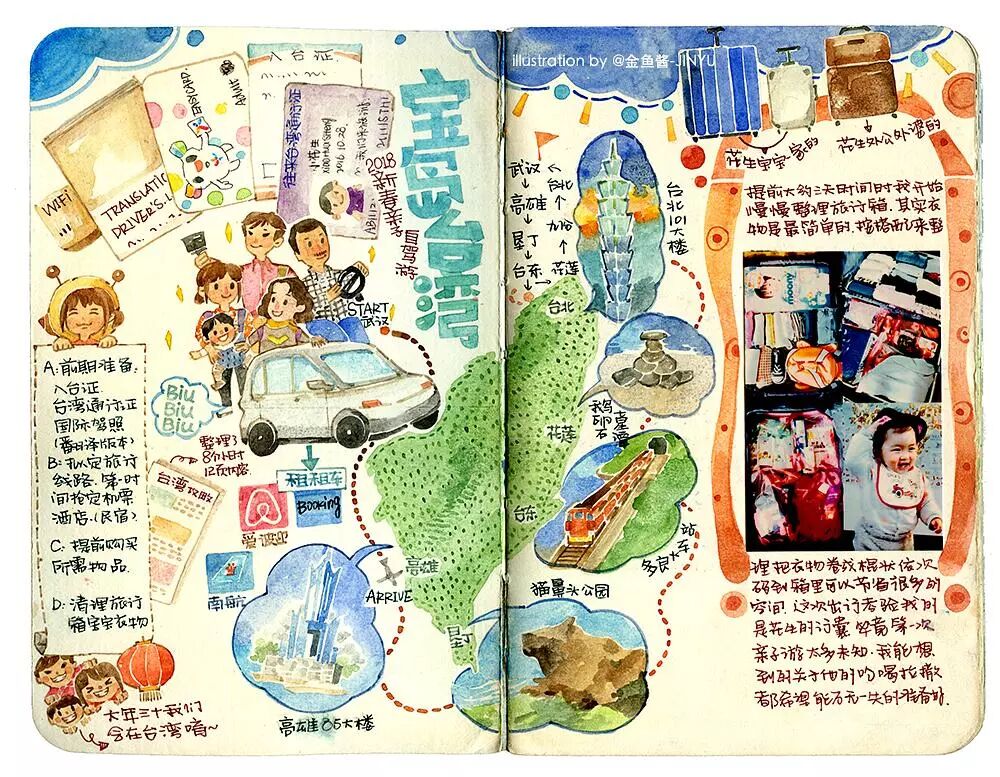 illustration by @金鱼酱-JINYU
入台证
POSTCARD
WIFI
TRANSLATIO
DRIVER'S L
往来台湾通行证
小花生
2018
新春亲子
自驾游
宝岛台湾
START
武汉
A:前期准备.
入台证
台湾通行证
国际驾照
(翻译版本)
B:拟定旅行
线路.第一时
间抢定机票
酒店.(民宿)
C:提前购买
所需物品
D:清理旅行
箱宝宝衣物
Biu
Biu
Biu
整理了
8小时
12页内容
台湾攻略
租租车
爱彼迎
BOOKING
南航
ARRIVE
高雄
垦丁
高雄85大楼
大年三十我们
会在台湾唷~
武汉
台北
高雄
垦丁
台东
花莲
台北101大楼
台北
花莲
台东
鹅卵石
多良火车站
猫鼻头公园
花生宝宝家的
花生外公外婆的
提前大约3天时间时我开始
慢慢整理旅行箱.其实衣
物是最简单的.按摺而来整
moony
理把衣物卷成棍状依次
码到箱里可以节省很多的
空间.这次出行考验我的
是花生的行囊.毕竟第一次
亲子游太多未知.我能想
到的关于他的吃喝拉撒
都希望能万无一失的准备好.